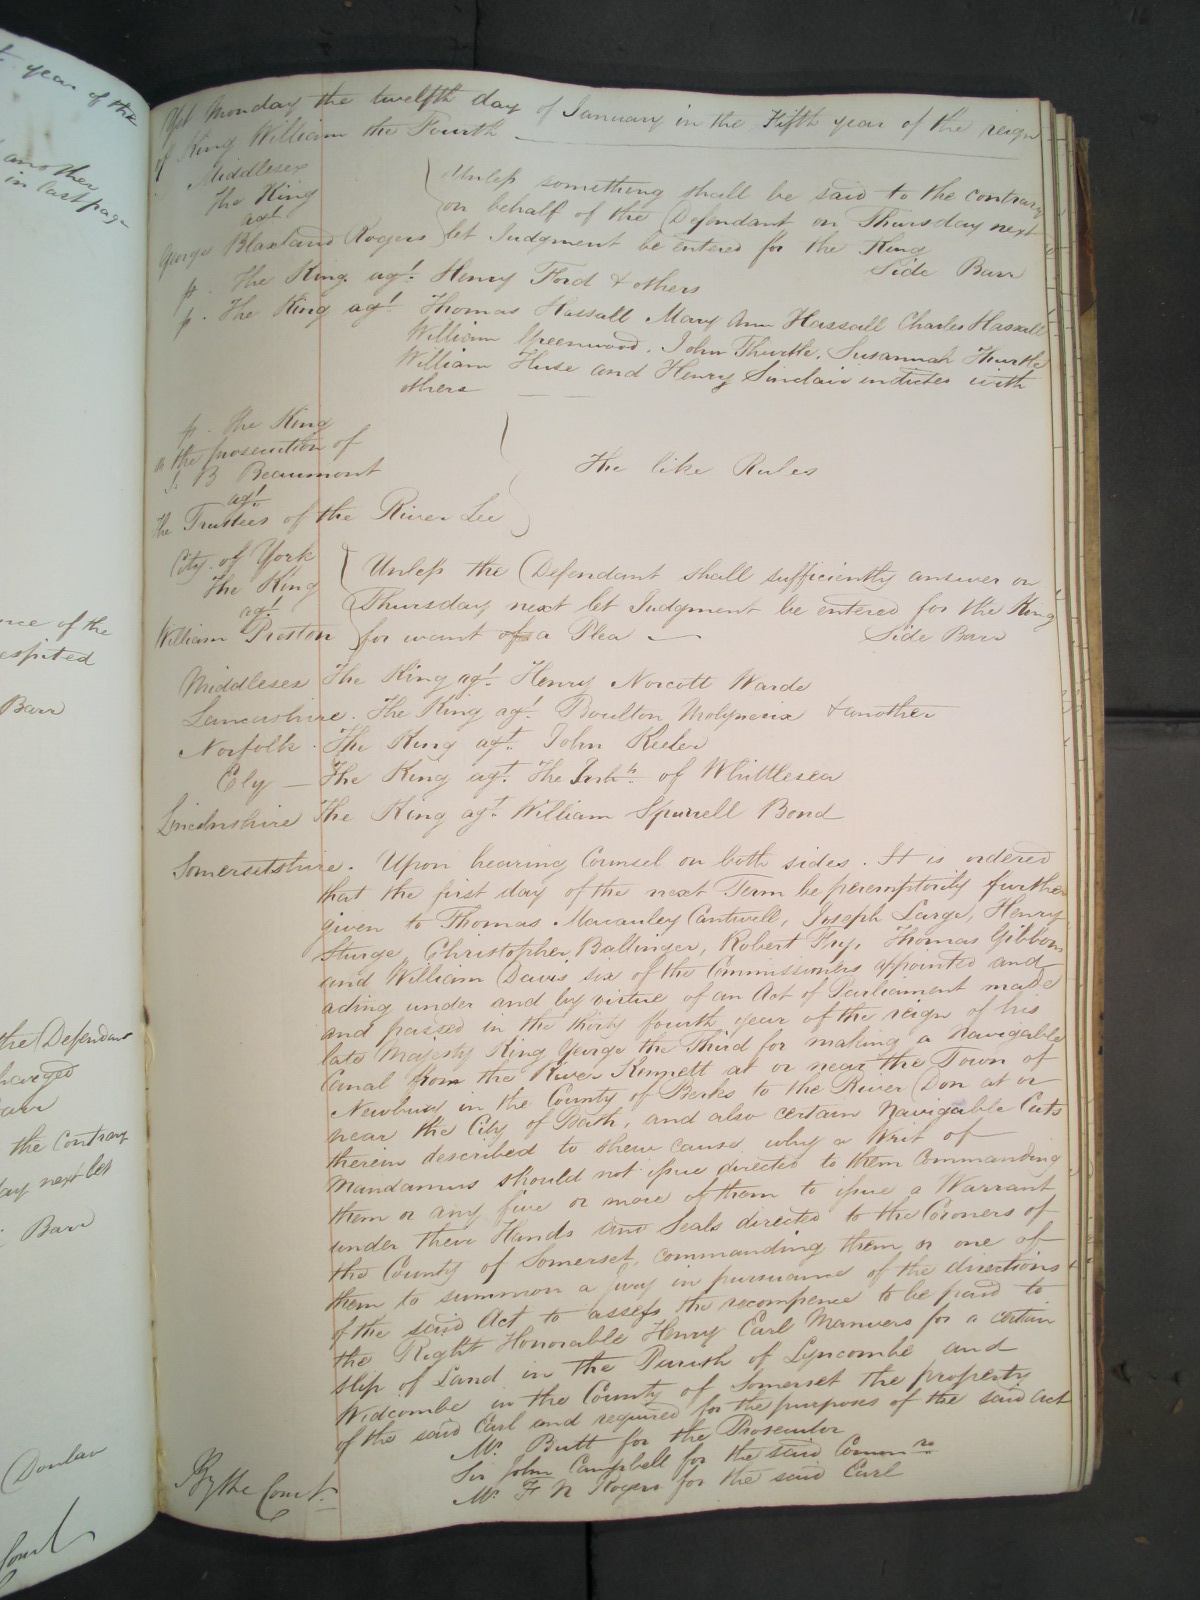 year of the
another
in last page
nce of the
espited
Barr
the Defendant
harged
Barr
the Contrary
day next let
Barr
Donlan
Court
Yet Monday the twelfth day of January in the Fifth year of the reign
of King William the Fourth
Middlesex
The King
agt
George Blaxland Rogers
Unless something shall be said to the contrary
on behalf of the Defendant on Thursday next
let Judgment be entered for the King
Side Barr
p. The King agt. Henry Ford & others
p. The King agt Thomas Hassall Mary Ann Hassall Charles Hassall
William Greenwood. John Thurtle. Susannah Thurtle
William Huse and Henry Sinclair indicted with
others
p. The King
on the prosecution of
J. B Beaumont
agt.
The Trustees of the River Lee
The like Rules
City of York
The King
agt.
William Preston
Unless the Defendant shall sufficiently answer on
Thursday next let Judgment be entered for the King
for want of a Plea
Side Barr
Middlesex The King agt. Henry Norcott Warde
Lancashire. The King agt. Boulton Molyneux & another
Norfolk. The King agt. John Keeler
Ely — The King agt. The Inhts. of Whittlesea
Lincolnshire The King agt. William Spurrell Bond
Somersetshire. Upon hearing Counsel on both sides. It is ordered
that the first day of the next Term be peremptorily further
given to Thomas Macauley Cantwell, Joseph Large, Henry
Sturge, Christopher Ballinger, Robert Fry, Thomas Gibbons
and William Davis six of the Commissioners appointed and
acting under and by virtue of an Act of Parliament made
and passed in the thirty fourth year of the reign of his
late Majesty King George the Third for making a navigable
Canal from the River Kennett at or near the Town of
Newbury in the County of Berks to the River Don at or
near the City of Bath, and also certain Navigable Cuts
therein described to shew cause why a Writ of
Mandamus should not issue directed to them Commanding
them or any five or more of them to issue a Warrant
under their Hands and Seals directed to the Coroners of
the County of Somerset, commanding them or one of
them to summon a Jury in pursuance of the directions
of the said Act to assess the recompence to be paid to
the Right Honorable Henry Earl Manvers for a certain
slip of Land in the Parish of Lyncombe and
Widcombe in the County of Somerset the property
of the said Earl and required for the purposes of the said Act
Mr. Butt for the Prosecutor
Sir John Campbell for the said Commrs
Mr. F N Rogers for the said Earl
By the Court.